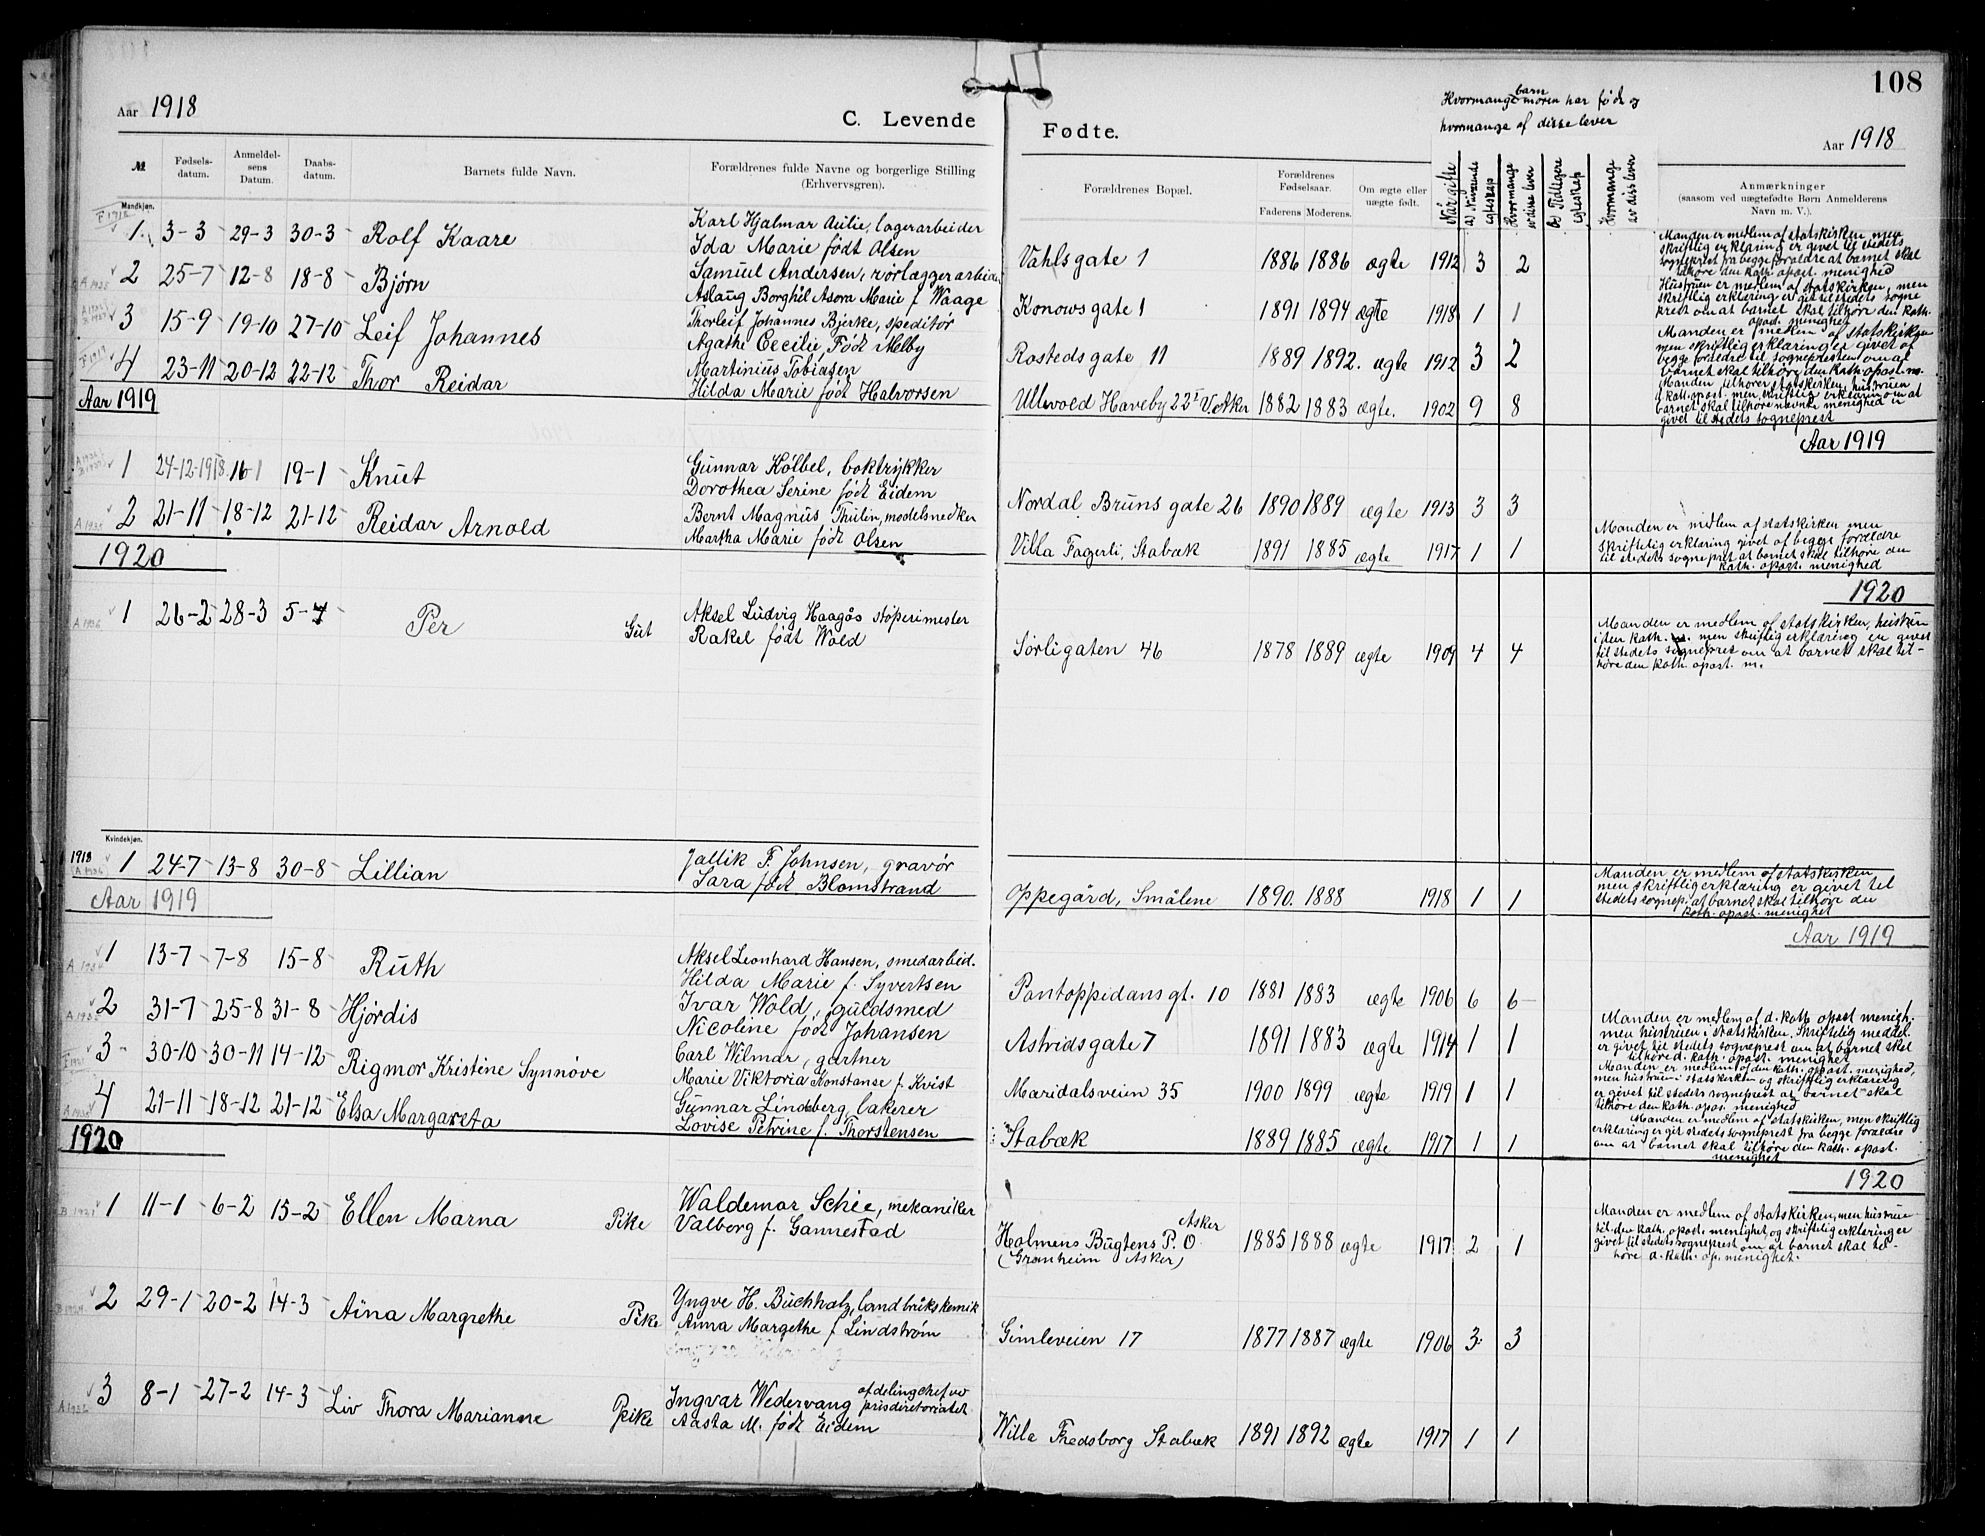 108
Aar 1918
C. Levende
Fødte.
Hvormange barn moren har født og
hvormange af disse lever
Aar 1918
№ Fødselsdatum. Anmeldelsens Datum. Daabsdatum. Barnets fulde Navn. Forældrenes fulde Navne og borgerlige Stilling (Erhvervsgren). Forældrenes Bopæl. Forældrenes Fødselsaar. Faderens Moderens. Om ægte eller uægte født. Når gifte a) Nuværende egteskap Hvormange av disse lever b) Tidligere egteskap Hvormange av diss lever Anmærkninger (saasom ved uægtefødte Børn Anmelderens Navn m. V.).
Mandkjøn.
F 1918 1. 3-3 29-3 30-3 Rolf Kaare Karl Hjalmar Aulie, lagerarbeider
Ida Marie født Olsen Vahlsgate 1 1886 1886 ægte 1912 3 2
Manden er medlem af statskirken men
skriftlig erklaring er givet til stedets
sogneprest fra begge foraldre at barnet skal
tilhöre den kath. apost. menighed
2 25-7 12-8 18-8 Bjørn Samuel Andersen, rørlæggerarbeider
Aslaug Borghil Asora Marie f Waage Konowsgate 1 1891 1894 ægte 1918 1 1
Hustruen er medlem af statskirken, men
skriftlig erklaring er git til stedets sogne
prest om at barnet skal tilhøre den kath.
apost. menighed
3 15-9 19-10 27-10 Leif Johannes Thorleif Johannes Bjerke, speditör
Agathe Cecilie, Født Melby Rostedsgate 11 1889 1892. ægte 1912 3 2
Manden er medlem af statskirken
men skriftlig erklaring er givet af
begge foraldre til sognepresten om at
barnet skal tilhöre den kath. apost. m.
F 1919 4 23-11 20-12 22-12 Thor Reidar Martinius Tobiasen
Hilda Marie født Halvorsen Ullevold Haveby 22 I V. Aker 1882 1883 ægte. 1902 9 8
Manden tilhører statskirken, hustruen
d. kath. apost. men skriftlig erklaring om at
barnet skal tilhöre navnte menighed er
givet til stedets sogneprest
Aar 1919
Aar 1919
1 24-12-1918 16-1 19-1 Knut Gunnar Kölbel, boktrykker
Dorothea Serine født Eidem Nordal Bruns gate 26 1890 1889 ægte 1913 3 3
A 1935 2 21-11 18-12 21-12 Reidar Arnold Bernt Magnus Thulin, modelsnedker
Martha Marie født Olsen Villa Fagerli, Stabæk 1891 1885 ægte 1917 1 1
Manden er medlem af statskirken men
skriftelig erklaring givet af begge forældre
til stedets sogneprest at barnet skal tilhöre den
kath. apost. menighed
1920
1920
A 1936 1 26-2 28-3 5-4 Per Gut Aksel Ludvig Haagås støperimester
Rakel født Wold Sørligaten 46 1878 1889 ægte 1909 4 4
Manden er medlem af statskirken, hustruen
i den kath. m. men skriftlig erklæring er givet
til stedets sogneprest om at barnet skal til-
höre den kath. apost. m.
Kvindekjøn.
1918 1 24-7 13-8 30-8 Lillian Jallik F. Johnsen, gravør
Sara født Blomstrand Oppegård, Smålene 1890. 1888 1918 1 1
Manden er medlem af statskirken
men skriftlig erklaring er givet til
stedets sognep. at barnet skal tilhöre den
kath. apost. menighet
Aar 1919
Aar 1919
1 13-7 7-8 15-8 Ruth Aksel Leonhard Hansen, smedarbeid.
Hilda Marie f. Syvertsen Pontoppidans gt. 10 1881 1883 ægte 1906 6 6
2 31-7 25-8 31-8 Hjørdis Ivar Wold, guldsmed
Nicoline født Johansen Astridsgate 7 1891 1883 ægte 1914 1 1
Manden er medlem af d. kath. apost menigh.
men hustruen i statskirken. Skriftelig meddel.
er givet til stedets sogneprest om at barnet skal
tilhöre d. kath. apost. menighet
3 30-10 30-11 14-12 Rigmor Kristine Synnøve Carl Wilmar, gartner
Marie Viktoria Konstanse f. Kvist Maridalsveien 35 1900 1899 ægte 1919 1 1
Manden er medlem af den kath. apost. menighed,
men hustruen i statskirken og skriftlig erklæring
er givet til stedets sogneprest at barnet skal
tilhöre den kath. apos. menighed
A 1935 4 21-11 18-12 21-12 Elsa Margareta Gunnar Lindberg, lakerer
Lovise Petrine f. Thorstensen Stabæk 1889 1885 ægte 1917 1 1
Manden er medlem af statskirken, men skriftlig
erklæring er git stedets sogneprest fra begge forældre
om at barnet skal tilhöre den kath. apost.
menighet
1920
1920
1 11-1 6-2 15-2 Ellen Marna Pike Waldemar Schie, mekaniker
Valborg f. Gannestad Holmens Bugtens P.O. Asker
(Granheim Asker) 1885 1888 ægte 1917 2 1
Manden er medlem af statskirken, men hustruen
til den kath. apost. menighet, og skriftlig erklæring er
givet til stedets sogneprest om at barnet skal til-
höre d. kath. ap. menighet.
2 29-1 20-2 14-3 Aina Margrethe Pike Yngve H. Buchholz, landbrukskemik
Anna Margethe f Lindstrøm Gimleveien 17 1877 1887 ægte 1906 3 3
3 8-1 27-2 14-3 Liv Thora Marianne Pike Ingvar Wedervang afdelingchef vv prisdirektoriatet
Aasta M. født Eidem Willa Fredsborg Stabæk 1891 1892 ægte 1917 1 1